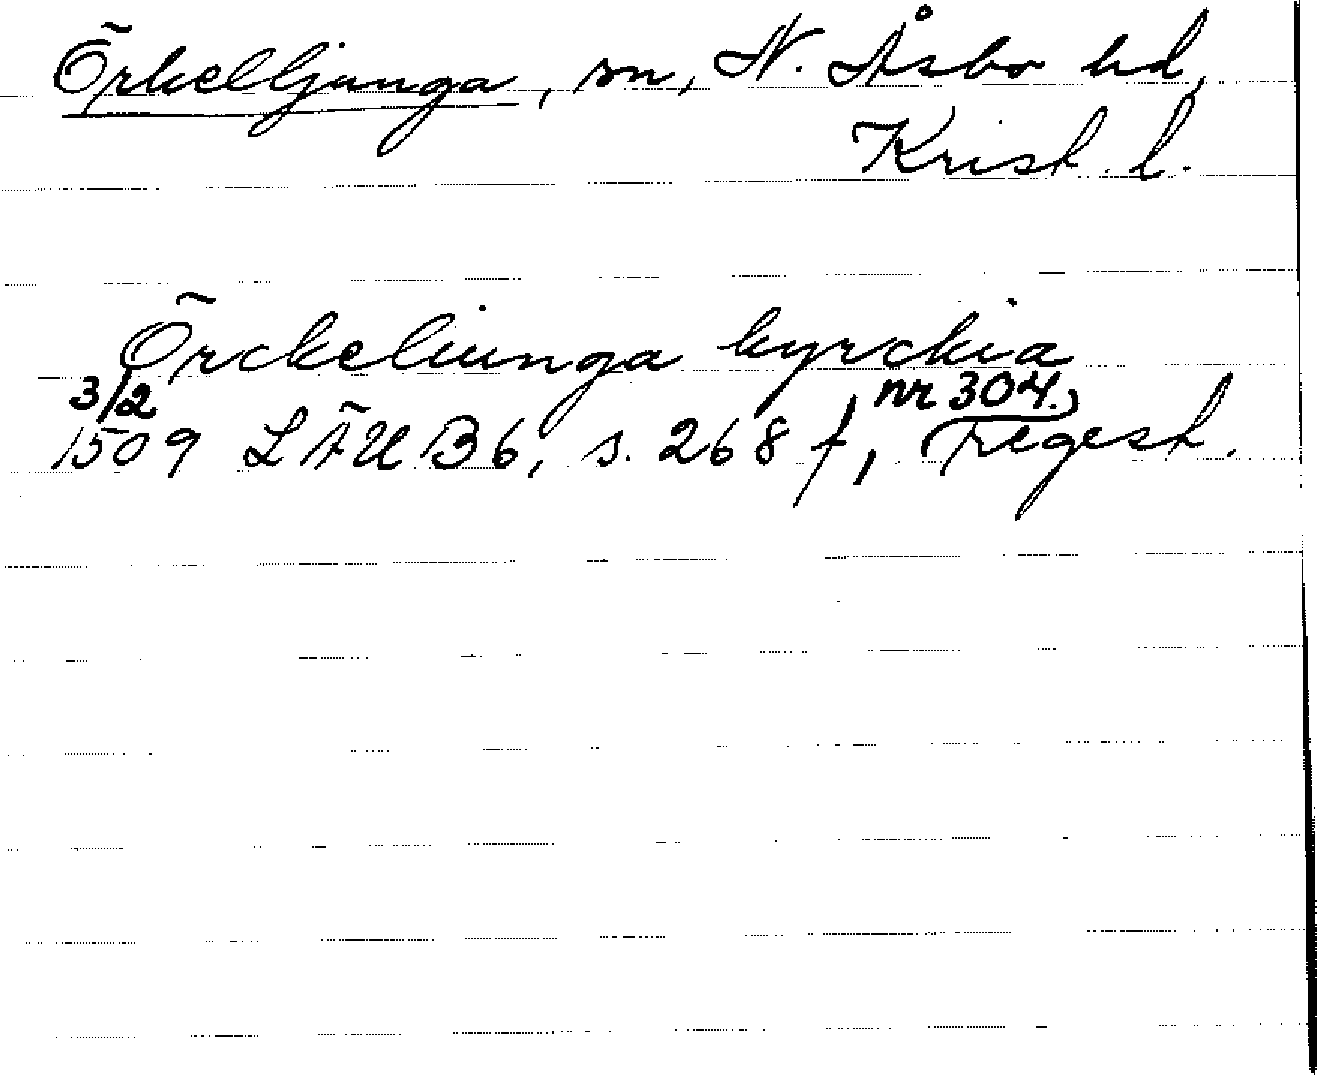 Örkelljunga, sn, N. Åsbo hd,
Krist. l.
Örckeliunga kyrckia
3/2 nr 304.
1509 LÄU B6, s. 268 f, regest.